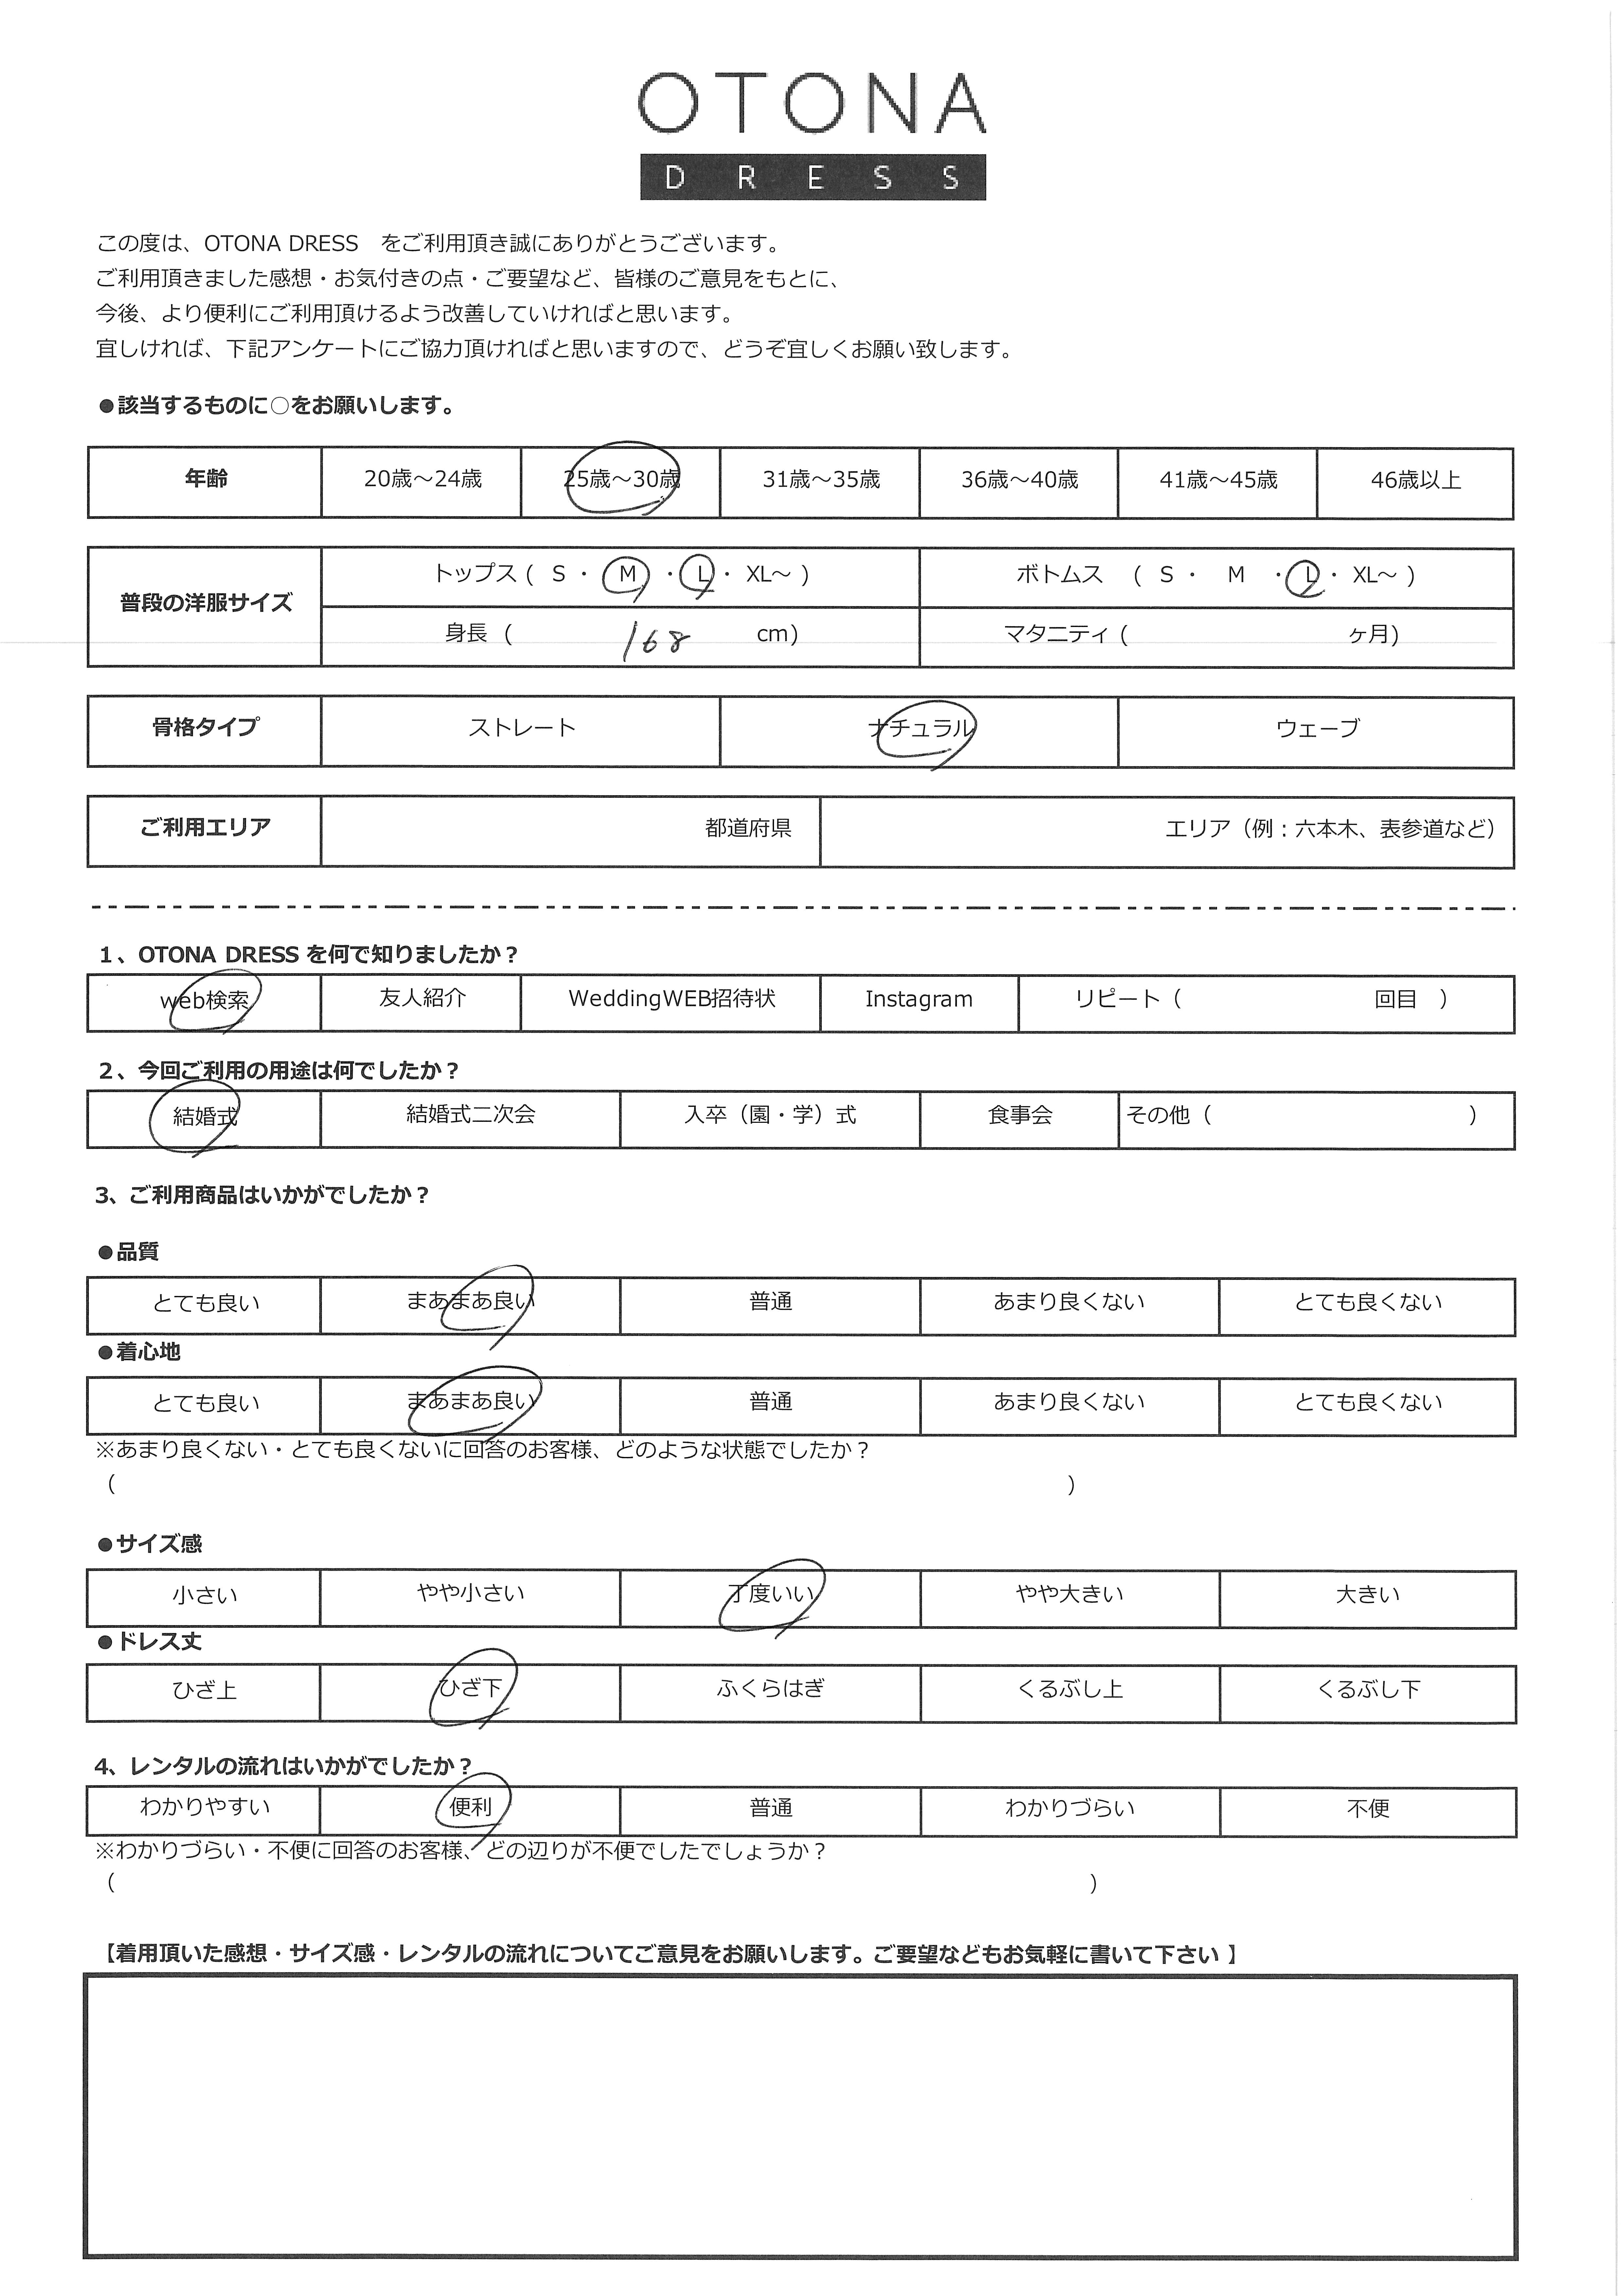 OTONA
DRESS
この度は、OTONA DRESS　をご利用頂き誠にありがとうございます。
ご利用頂きました感想・お気付きの点・ご要望など、皆様のご意見をもとに、
今後、より便利にご利用頂けるよう改善していければと思います。
宜しければ、下記アンケートにご協力頂ければと思いますので、どうぞ宜しくお願い致します。
●該当するものに○をお願いします。
年齢 20歳～24歳 25歳～30歳 31歳～35歳 36歳～40歳 41歳～45歳 46歳以上
普段の洋服サイズ
トップス ( S ・ M ・ L ・ XL～ ) ボトムス ( S ・ M ・ L ・ XL～ )
身長 ( 168 cm) マタニティ ( ヶ月)
骨格タイプ ストレート ナチュラル ウェーブ
ご利用エリア 都道府県 エリア（例：六本木、表参道など）
1、OTONA DRESS を何で知りましたか？
web検索 友人紹介 WeddingWEB招待状 Instagram リピート（ 回目 ）
2、今回ご利用の用途は何でしたか？
結婚式 結婚式二次会 入卒（園・学）式 食事会 その他（ ）
3、ご利用商品はいかがでしたか？
●品質
とても良い まあまあ良い 普通 あまり良くない とても良くない
●着心地
とても良い まあまあ良い 普通 あまり良くない とても良くない
※あまり良くない・とても良くないに回答のお客様、どのような状態でしたか？
（ ）
●サイズ感
小さい やや小さい 丁度いい やや大きい 大きい
●ドレス丈
ひざ上 ひざ下 ふくらはぎ くるぶし上 くるぶし下
4、レンタルの流れはいかがでしたか？
わかりやすい 便利 普通 わかりづらい 不便
※わかりづらい・不便に回答のお客様、どの辺りが不便でしたでしょうか？
（ ）
【着用頂いた感想・サイズ感・レンタルの流れについてご意見をお願いします。ご要望などもお気軽に書いて下さい 】